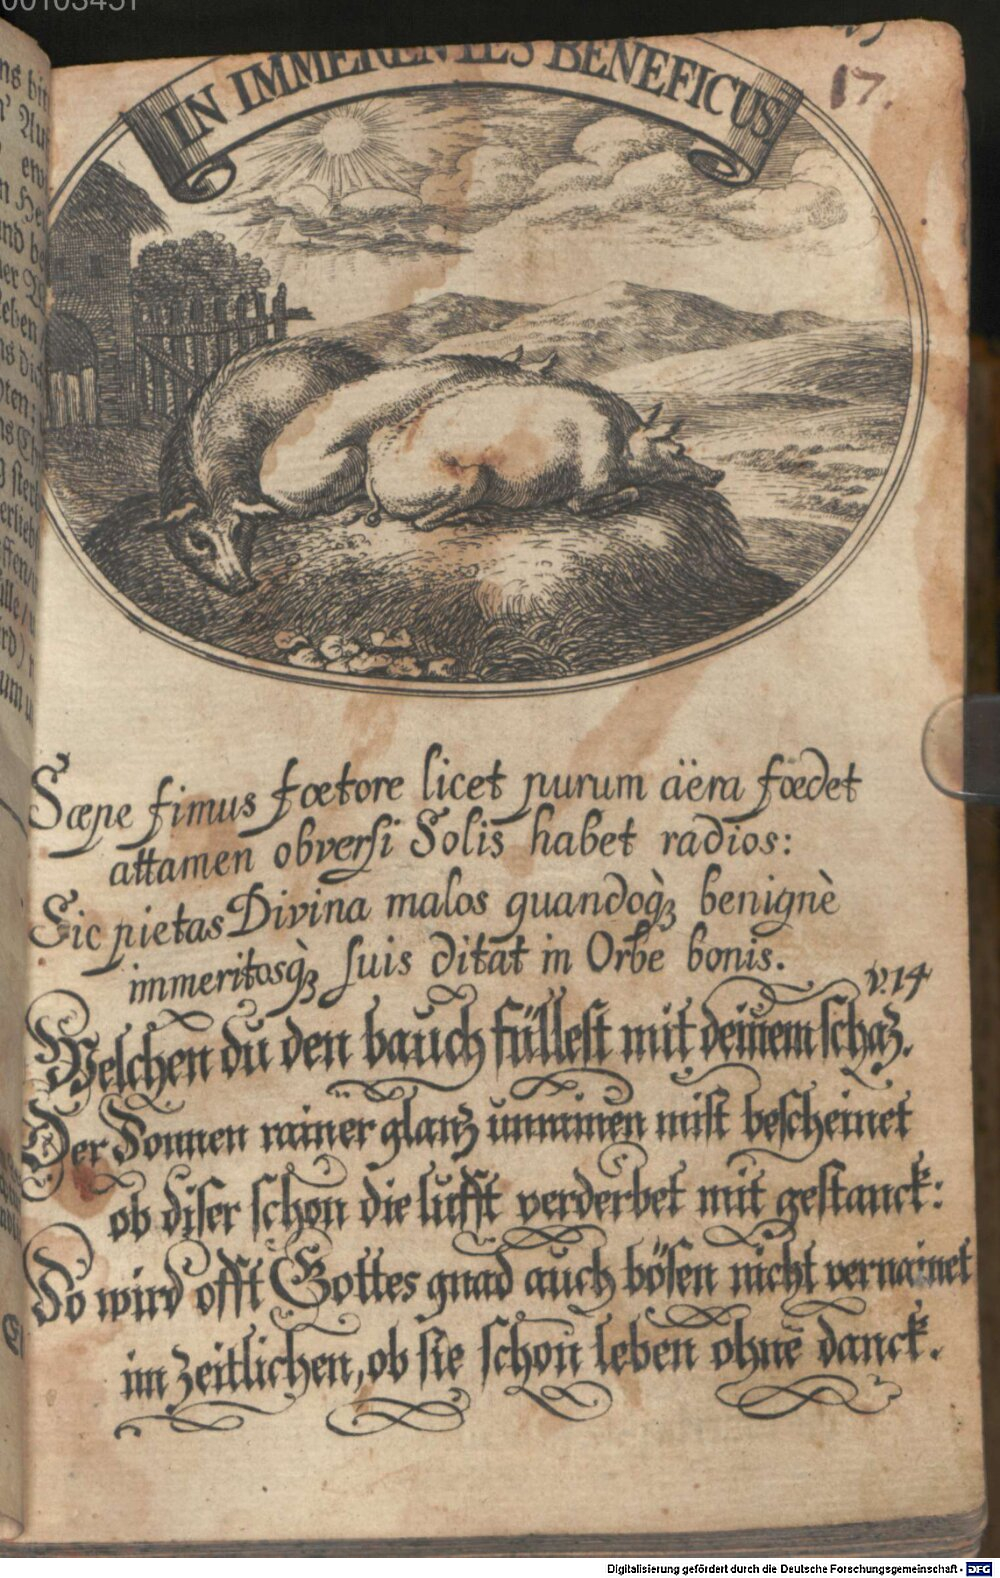 00103451
17.
IN IMMERENTES BENEFICUS
Sæpe fimus fœtore licet purum äëra fœdet
attamen obversi Solis habet radios:
Sic pietas Divina malos quandoq̀ꝫ benignè
immeritosq̀ꝫ suis ditat in Orbe bonis.
v.14
Welchen du den bauch füllest mit deinem schaz.
Der Sonnen rainer glanz unrainen mist bescheinet
ob diser schon die lufft verderbet mit gestanck:
So wird offt Gottes gnad auch bösen nicht vernainet
im zeitlichen, ob sie schon leben ohne danck.
Digitalisierung gefördert durch die Deutsche Forschungsgemeinschaft - DFG